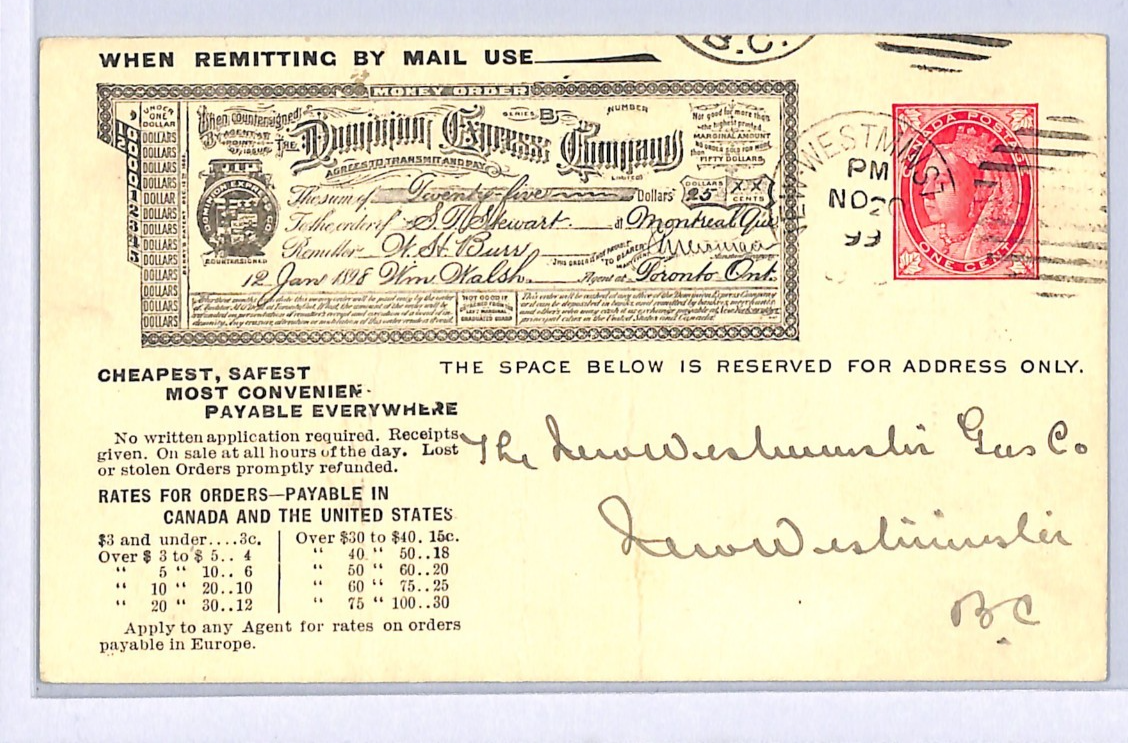 WHEN REMITTING BY MAIL USE
B.C.
MONEY ORDER
UNDER ONE DOLLAR
DOLLARS
DOLLARS
DOLLARS
DOLLARS
DOLLARS
DOLLAR
DOLLARS
DOLLARS
DOLLARS
DOLLARS
DOLLARS
DOLLARS
DOLLARS
When Countersigned
BY AGENT AT
POINT OF ISSUE
SERIES B
NUMBER
Not good for more than
the highest printed
MARGINAL AMOUNT
NO ORDER GOOD FOR MORE
than FIFTY DOLLARS
THE Dominion Express Company
LIMITED
AGREES TO TRANSMIT AND PAY
DOMINION EXPRESS CO
COUNTERSIGNED
The sum of Twenty five Dollars
DOLLARS 25 XX CENTS
To the order of S. T. Stewart. at Montreal Que
Remitter W. H. Burr
12 Jan 1898 Wm. Walsh Agent at Toronto Ont.
NOT GOOD IF
CANADA POSTAGE
ONE CENT
NEW WESTMINST
PM
NO 20
99
CHEAPEST, SAFEST
MOST CONVENIEN
PAYABLE EVERYWHERE
THE SPACE BELOW IS RESERVED FOR ADDRESS ONLY.
No written application required. Receipts
given. On sale at all hours of the day. Lost
or stolen Orders promptly refunded.
RATES FOR ORDERS—PAYABLE IN
CANADA AND THE UNITED STATES
$3 and under....3c. Over $30 to $40. 15c.
Over $ 3 to $ 5.. 4 " 40 " 50..18
" 5 " 10.. 6 " 50 " 60..20
" 10 " 20..10 " 60 " 75..25
" 20 " 30..12 " 75 " 100..30
Apply to any Agent for rates on orders
payable in Europe.
The New Westminster Gas Co
New Westminster
B.C